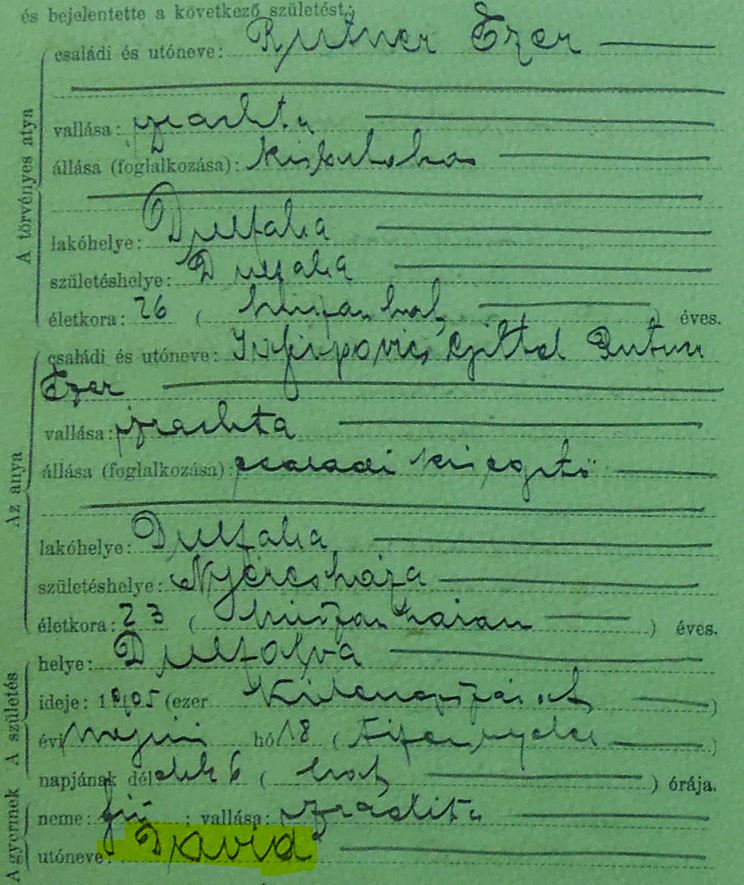 és bejelentette a következő születést:
családi és utóneve: Rutner Ezer
A törvényes atya
vallása: izraelita
állása (foglalkozása):
lakóhelye: Dulfalva
születéshelye: Dulfalva
életkora: 26 (huszonhat) éves.
Az anya
családi és utóneve: Gittel Rutner
Ezer
vallása: izraelita
állása (foglalkozása): családi kisegítő
lakóhelye: Dulfalva
születéshelye: Nyéresháza
életkora: 23 (huszonhárom) éves.
A születés
helye: Dulfalva
ideje: 1905 (ezer kilencszázöt)
évi május hó 18 (tizennyolc)
napjának dél előtt 6 (hat) órája.
A gyermek
neme: fiú; vallása: izraelita
utóneve: Dávid